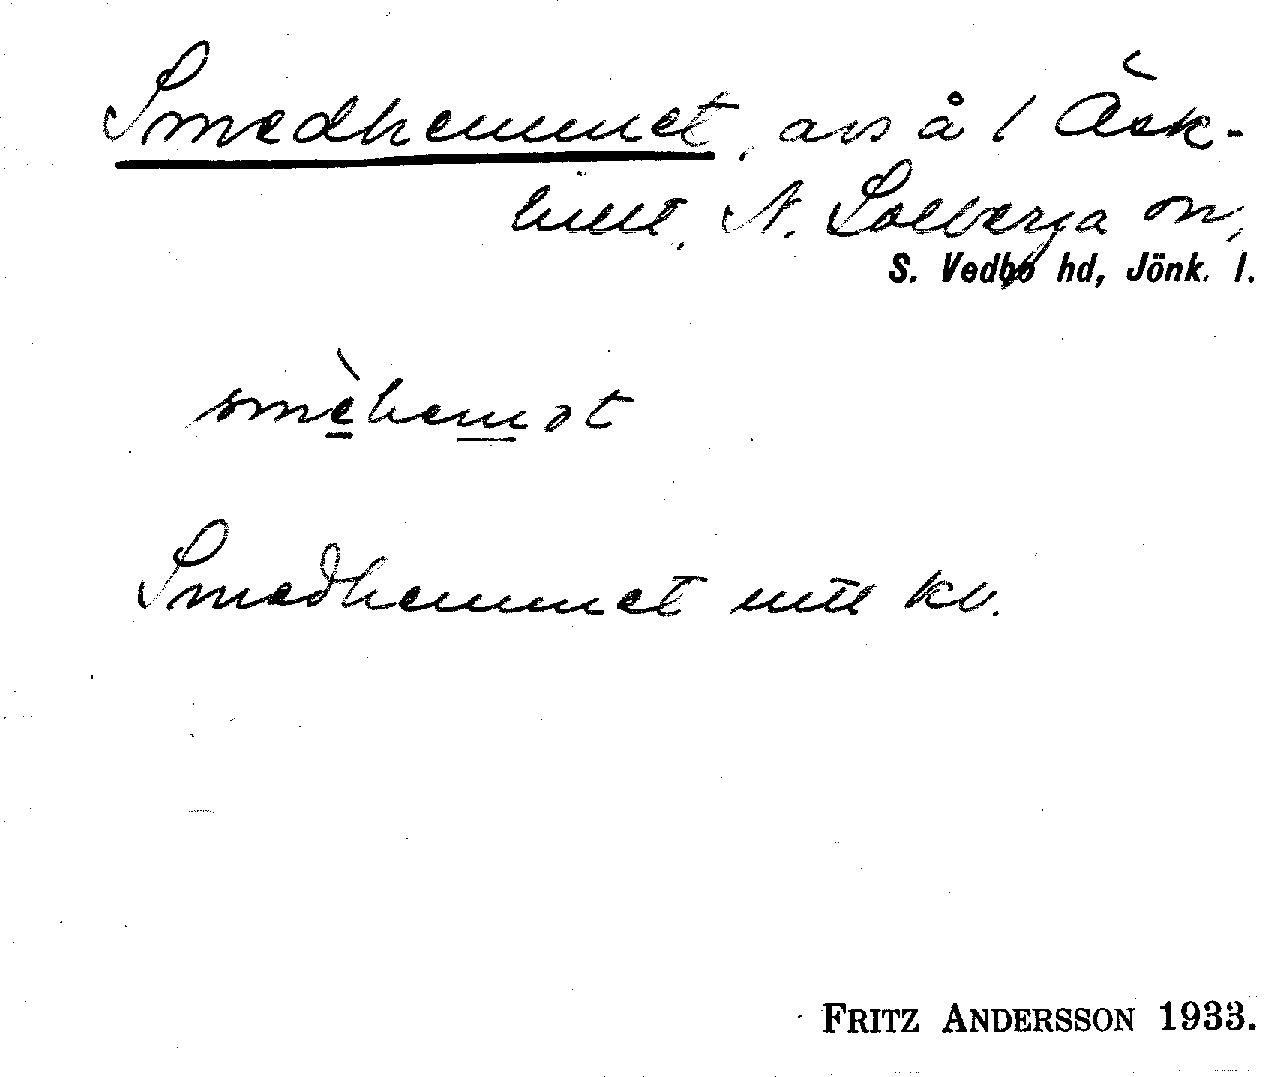 Smedhemmet, avs å 1 Äsk-
hult, N. Solberga sn,
S. Vedbo hd, Jönk. l.
smèhemət
Smedhemmet uttl kv.
FRITZ ANDERSSON 1933.